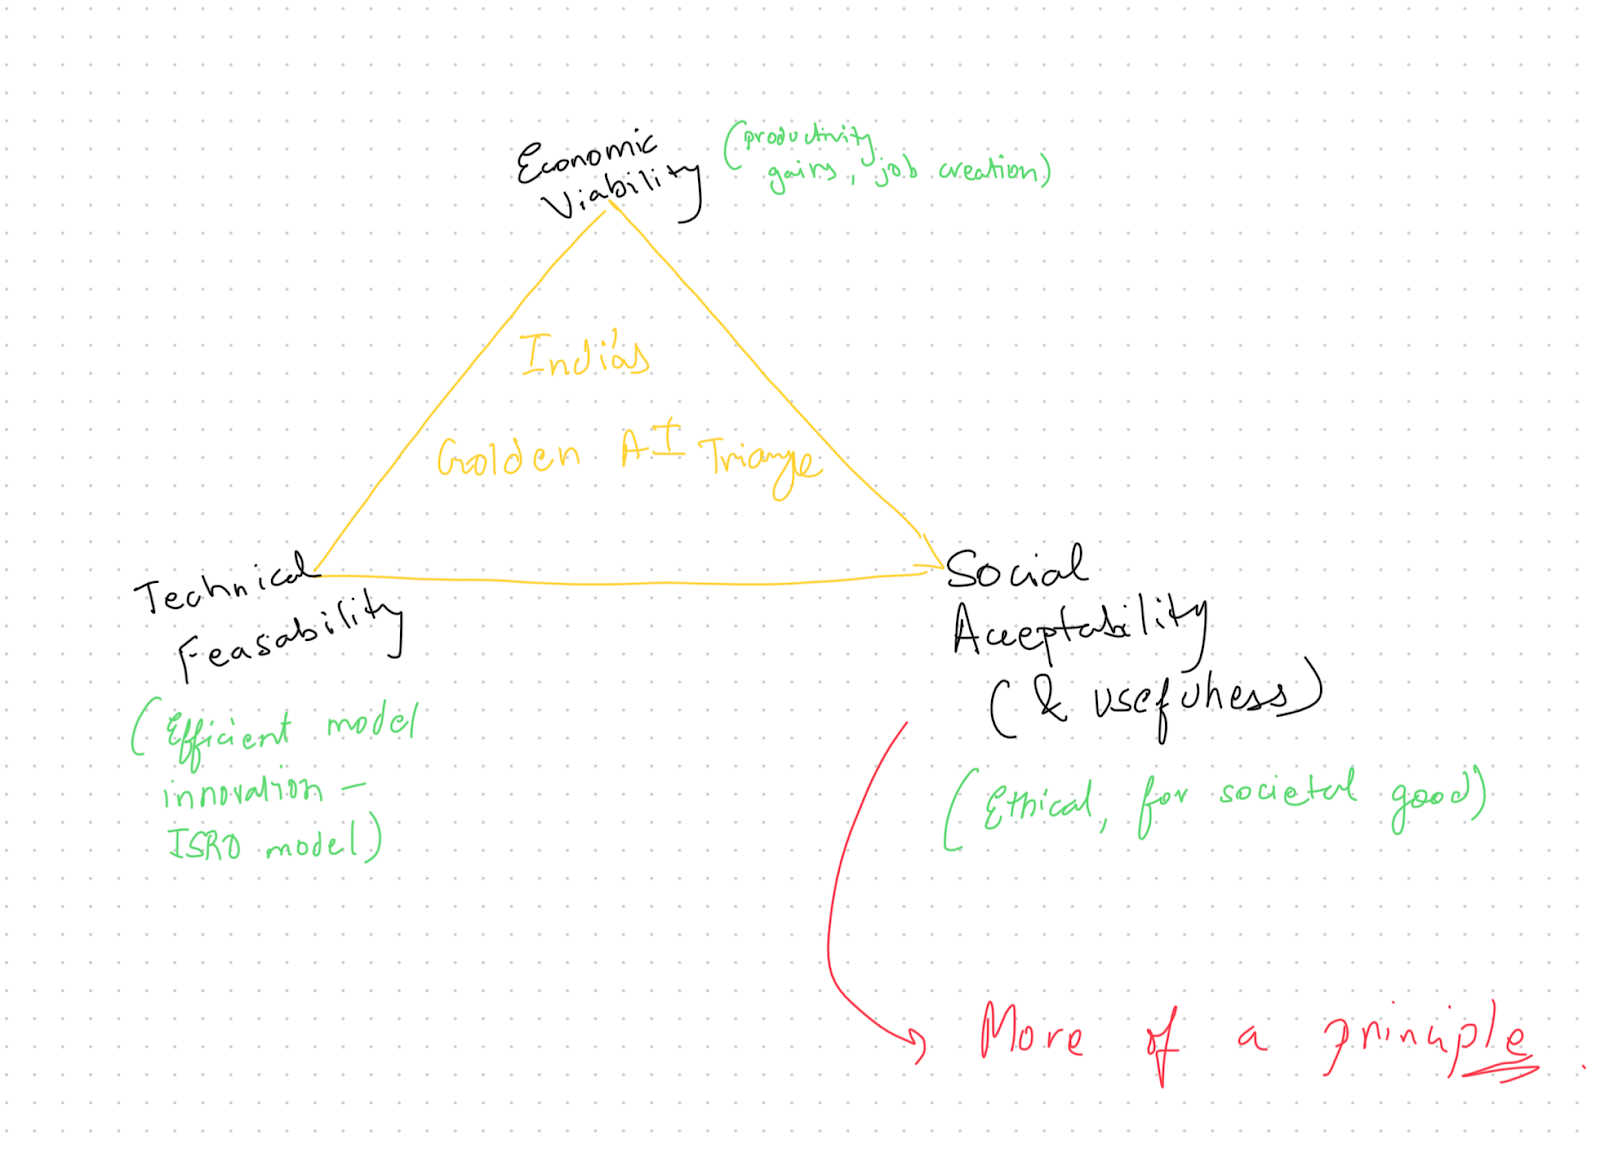 Economic
Viability
(productivity
gains, job creation)
India's
Golden AI Triangle
Technical
Feasability
(Efficient model
innovation –
ISRO model)
Social
Acceptability
(& usefulness)
(Ethical, for societal good)
More of a principle.